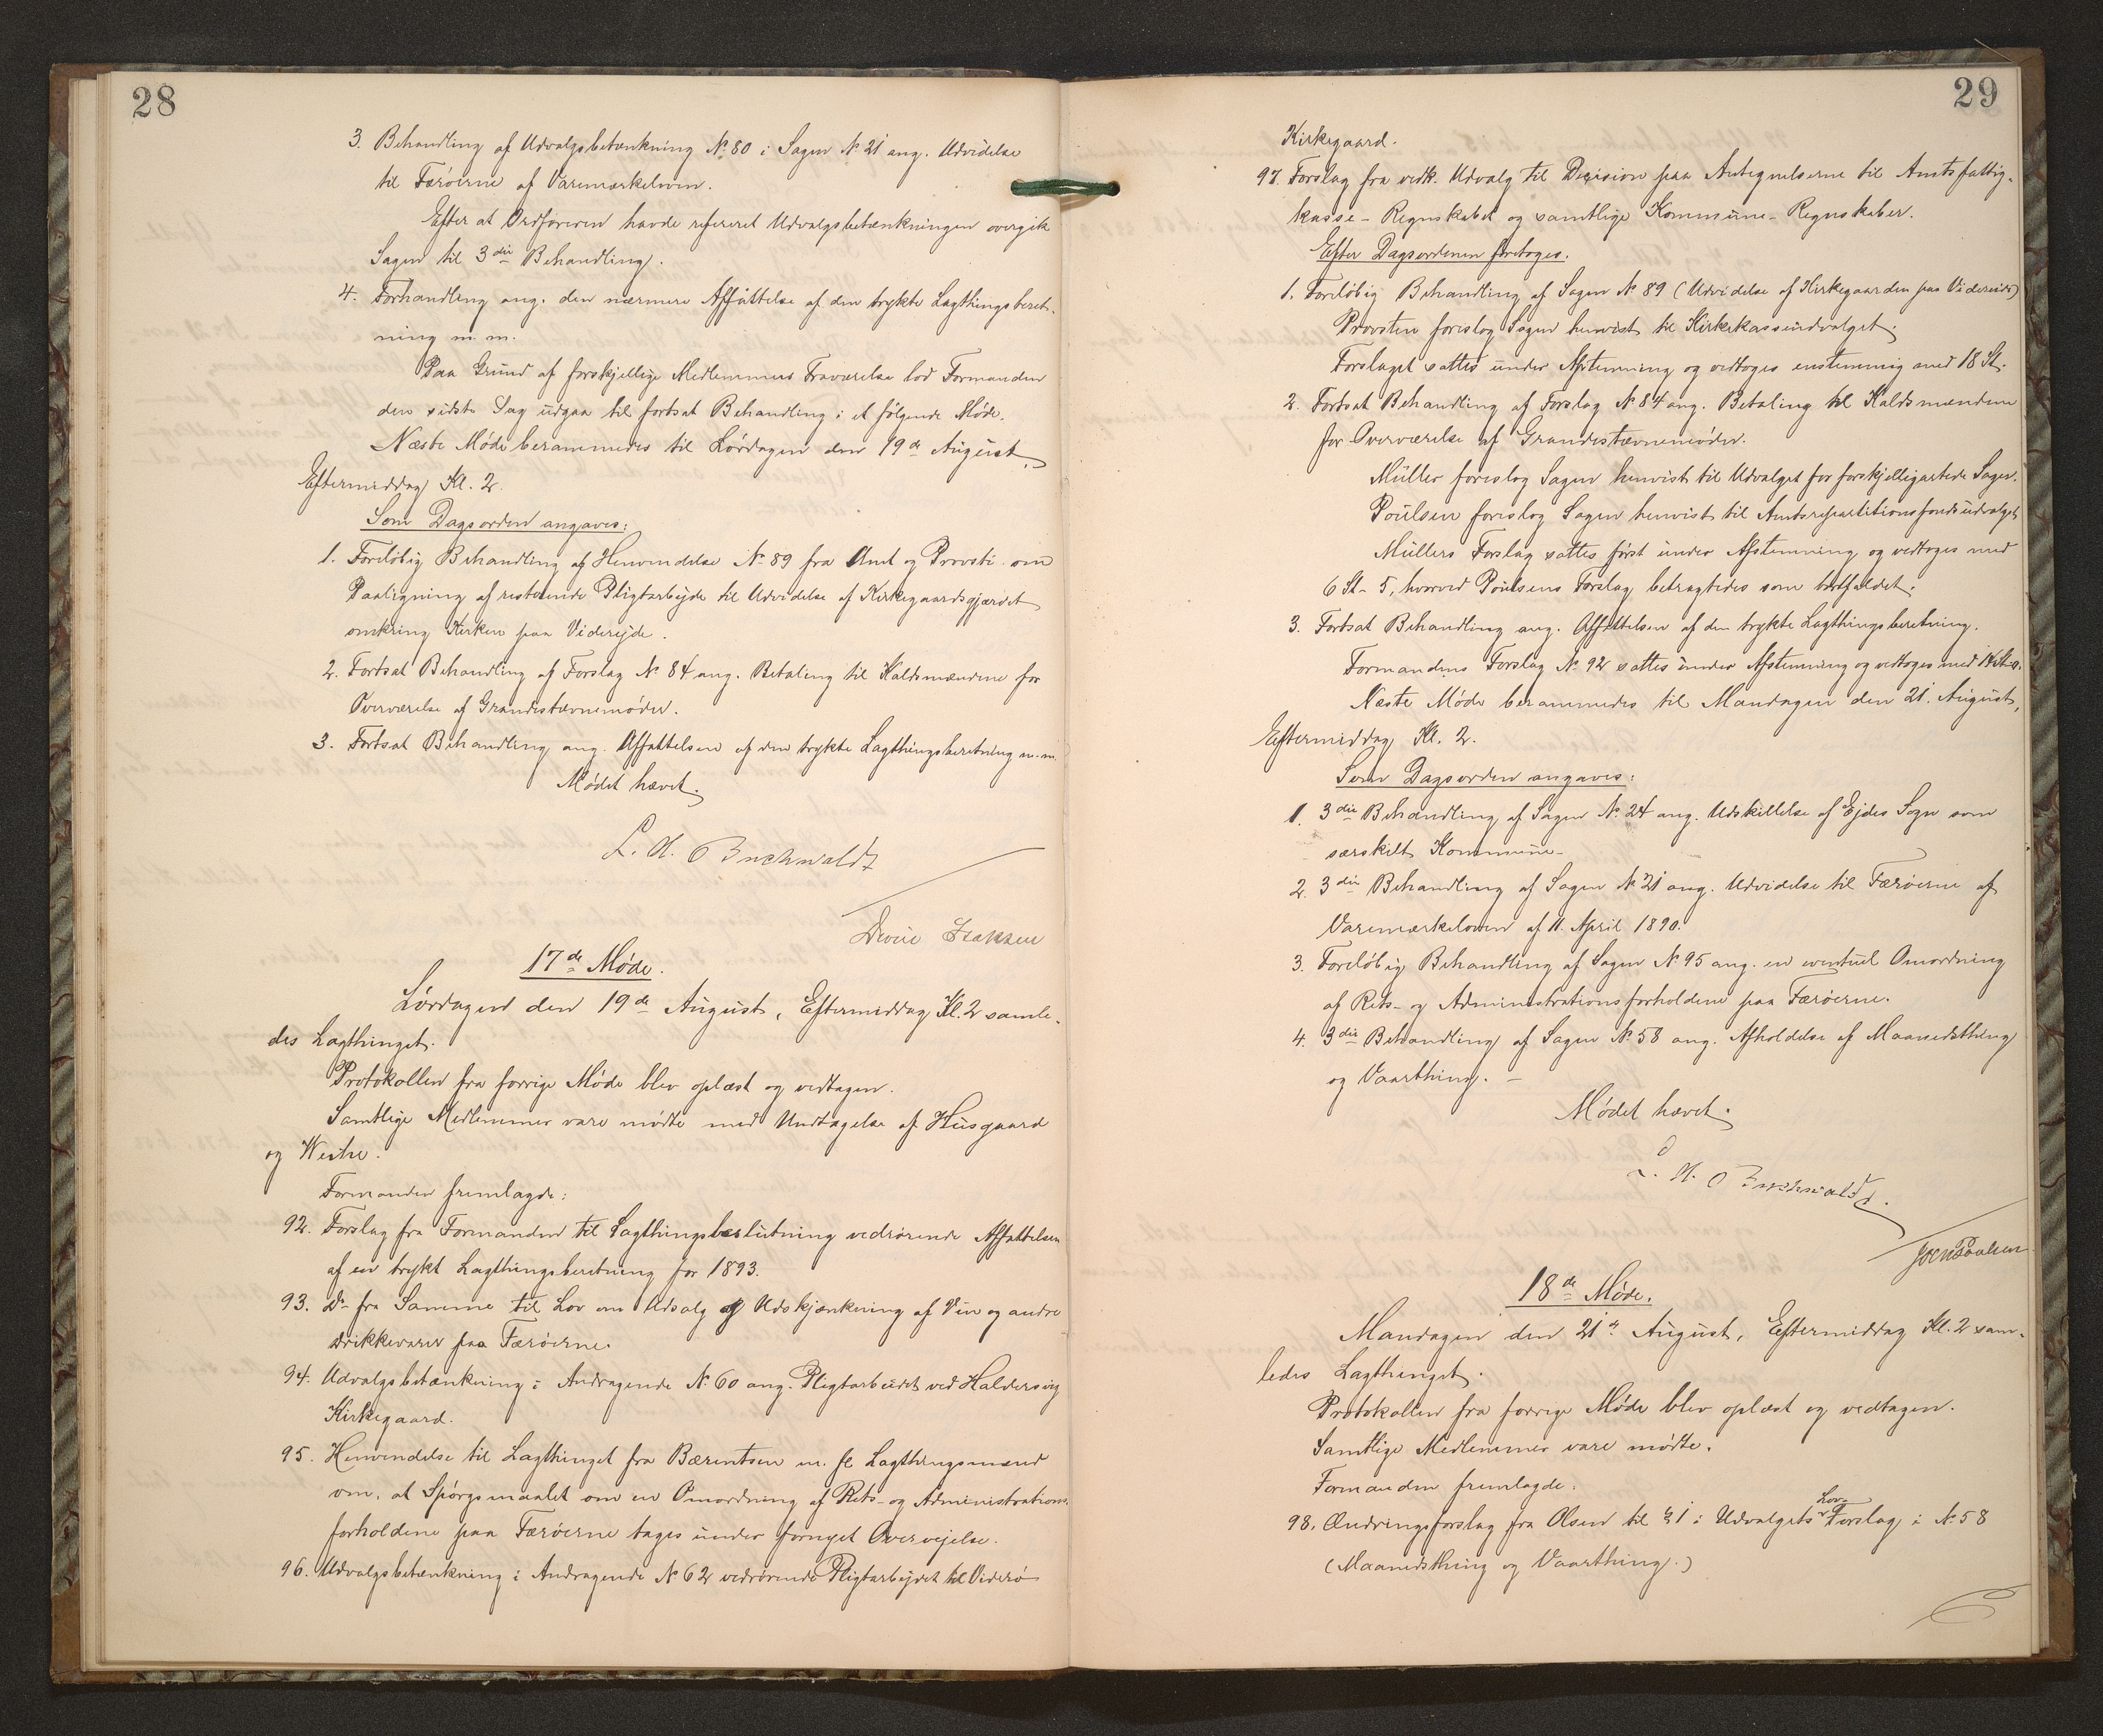 28
3. Behandling af Udvalgsbetænkning № 80 i Sagen № 21 ang. Udvidelse
til Færöerne af Varemærkeloven.
Efter at Ordföreren havde refereret Udvalgsbetænkningen overgik
Sagen til 3die Behandling.
4. Forhandling ang. den nærmere Affattelse af den trykte Lagthingsberet-
ning m. m.
Paa Grund af forskjellige Medlemmers Fraværelse lod Formanden
den sidste Sag udgaa til fortsat Behandling i et fölgende Möde.
Næste Möde berammedes til Lördagen den 19de August,
Eftermiddag Kl. 2.
Som Dagsorden angaves:
1. Forelöbig Behandling af Henvendelse № 89 fra Amt og Provsti om
Paaligning af resterende Pligtarbejde til Udvidelse af Kirkegaardsgjærdet
omkring Kirken paa Viderejde.
2. Fortsat Behandling af Forslag № 84 ang. Betaling til Kaldsmændene for
Overværelse af Grandestævnemöder.
3. Fortsat Behandling ang. Affattelsen af den trykte Lagthingsberetning m. m.
Mödet hævet.
L. H. Buchwaldt
Isaksen
17de Möde.
Lördagen den 19de August, Eftermiddag Kl. 2 samle-
des Lagthinget.
Protokollen fra forrige Möde blev oplæst og vedtagen.
Samtlige Medlemmer vare mödte med Undtagelse af Husgaard
og Westre.
Formanden fremlagde:
92. Forslag fra Formanden til Lagthingsbeslutning vedrörende Affattelsen
af en trykt Lagthingsberetning for 1893.
93. Do fra Samme til Lov om Udsalg og Udskjænkning af Vin og andre
Drikkevarer paa Færöerne.
94. Udvalgsbetænkning i Andragende № 60 ang. Pligtarbeidet ved Haldersvig
Kirkegaard.
95. Henvendelse til Lagthinget fra Bærentsen m. fl. Lagthingsmænd
om, at Spörgsmaalet om en Omordning af Rets- og Administrations-
forholdene paa Færöerne tages under fornyet Overvejelse.
96. Udvalgsbetænkning i Andragende № 62 vedrörende Pligtarbejdet til Viderö
29
Kirkegaard.
97. Forslag fra vedk. Udvalg til Decision paa Antegnelserne til Amtsfattig-
kasse-Regnskabet og samtlige Kommune-Regnskaber.
Efter Dagsordenen foretoges:
1. Forelöbig Behandling af Sagen № 89 (Udvidelse af Kirkegaarden paa Viderejde)
Provsten foreslog Sagen henvist til Kirkekasseudvalget.
Forslaget sattes under Afstemning og vedtoges enstemmig med 18 St.
2. Fortsat Behandling af Forslag № 84 ang. Betaling til Kaldsmændene
for Overværelse af Grandestævnemöder.
Müller foreslog Sagen henvist til Udvalget for forskjelligartede Sager.
Poulsen foreslog Sagen henvist til Amtsrepartitionsfondsudvalget
Müllers Forslag sattes först under Afstemning og vedtoges med
6 St - 5, hvorved Poulsens Forslag betragtedes som bortfaldet.
3. Fortsat Behandling ang. Affattelsen af den trykte Lagthingsberetning.
Formandens Forslag № 92 sattes under Afstemning og vedtoges med 14 St-0.
Næste Möde berammedes til Mandagen den 21. August,
Eftermiddag Kl. 2.
Som Dagsorden angaves:
1. 3die Behandling af Sagen № 24 ang. Udskillelse af Ejdes Sogn som
særskilt Kommune.
2. 3die Behandling af Sagen № 21 ang. Udvidelse til Færöerne af
Varemærkeloven af 11. April 1890.
3. Forelöbig Behandling af Sagen № 95 ang. en eventuel Omordning
af Rets- og Administrationsforholdene paa Færöerne.
4. 3die Behandling af Sagen № 58 ang. Afholdelse af Maanedsthing
og Vaarthing. -
Mödet hævet.
L. H. Buchwaldt.
Poulsen
18de Möde.
Mandagen den 21de August, Eftermiddag Kl. 2 sam-
ledes Lagthinget.
Protokollen fra forrige Möde blev oplæst og vedtagen.
Samtlige Medlemmer vare mödte.
Formanden fremlagde:
98. Ændringsforslag fra Olsen til § 1 i Udvalgets Lov-Forslag i № 58
(Maanedsthing og Vaarthing.)